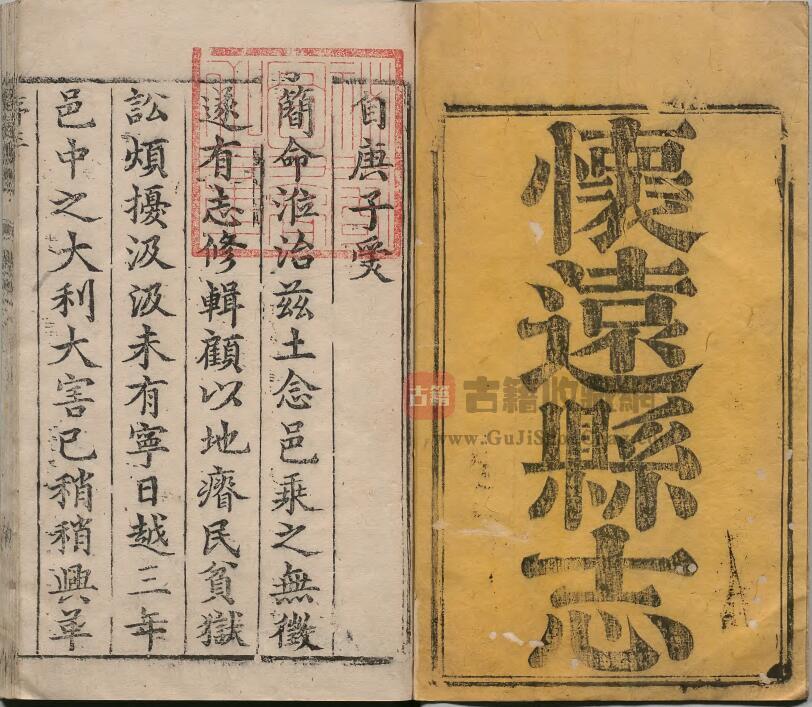 懷遠縣志
自庚子受
簡命涖治兹土念邑乗之無徵
遂有志修輯顧以地瘠民貧獄
訟煩擾汲汲未有寧日越三年
邑中之大利大害已稍稍興革
古籍
古籍收藏網